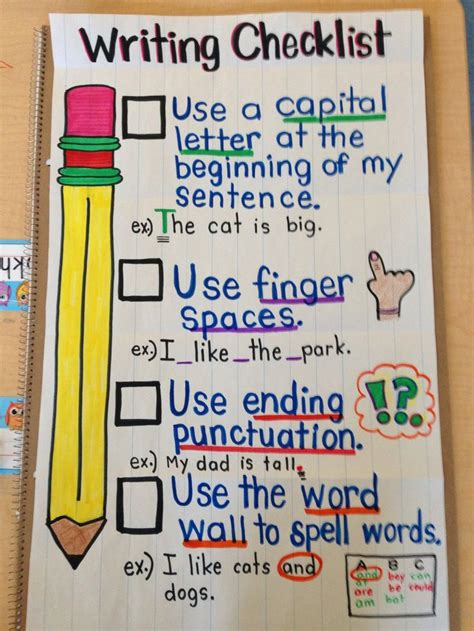 Writing Checklist
Use a capital
letter at the
beginning of my
sentence.
ex.) The cat is big.
Use finger
spaces.
ex.) I_like_the_park.
Use ending
punctuation.
! . ?
ex.) My dad is tall.
Use the word
wall to spell words.
ex.) I like cats and
dogs.
A B C
and boy can
at be could
are bat
am